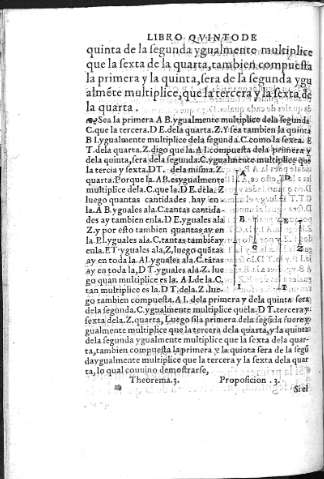 LIBRO QVINTO DE
quinta de la segunda ygualmente multiplice
que la sexta de la quarta, tambien compuesta
la primera y la quinta, sera de la segunda ygu
almẽte multiplice, que la tercera y la sexta de
la quarta.
Sea la primera A B. ygualmente multiplice dela segunda
C. que la tercera. D E. dela quarta. Z. Y sea tambien la quinta
B I. ygualmente multiplice dela segunda C. como la sexta. E
T. dela quarta. Z. digo que la. A I. compuesta dela primera y
dela quinta, sera dela segunda. C. ygualmente multiplice que
la tercia y sexta. D T. dela misma. Z.
quarta. Porque la. A B. es ygualmente
multiplice dela. C. que la. D E. dela. Z
luego quantas cantidades hay en
la. A B. yguales ala. C. tantas cantida-
des ay tambien enla. D E. yguales ala.
Z. y por esto tambien quantas ay en
la. B I. yguales ala. C. tantas tambiẽ ay
enla. E T. yguales ala, Z, luego quãtas
ay en toda la. A I. yguales ala. C. tãtas
ay en toda la, D T. yguales ala. Z. lue
go quan multiplice es la. A I. de la C,
tan multiplice es la. D T. dela. Z. lue-
go tambien compuesta. A I. dela primera y dela quinta sera
dela segunda. C. ygualmente multiplice que la. D T. tercera y
sexta dela. Z. quarta, Luego si la primera dela segũda fuere y-
gualmente multiplice que la tercera dela quarta, y la quinta
dela segunda ygualmente multiplice que la sexta dela quar-
ta, tambien compuesta la primera y la quinta sera de la segũ
da ygualmente multiplice que la tercera y la sexta dela quar-
ta, lo qual conuino demostrarse,
Theorema. 3. Proposicion. 3.
Si el